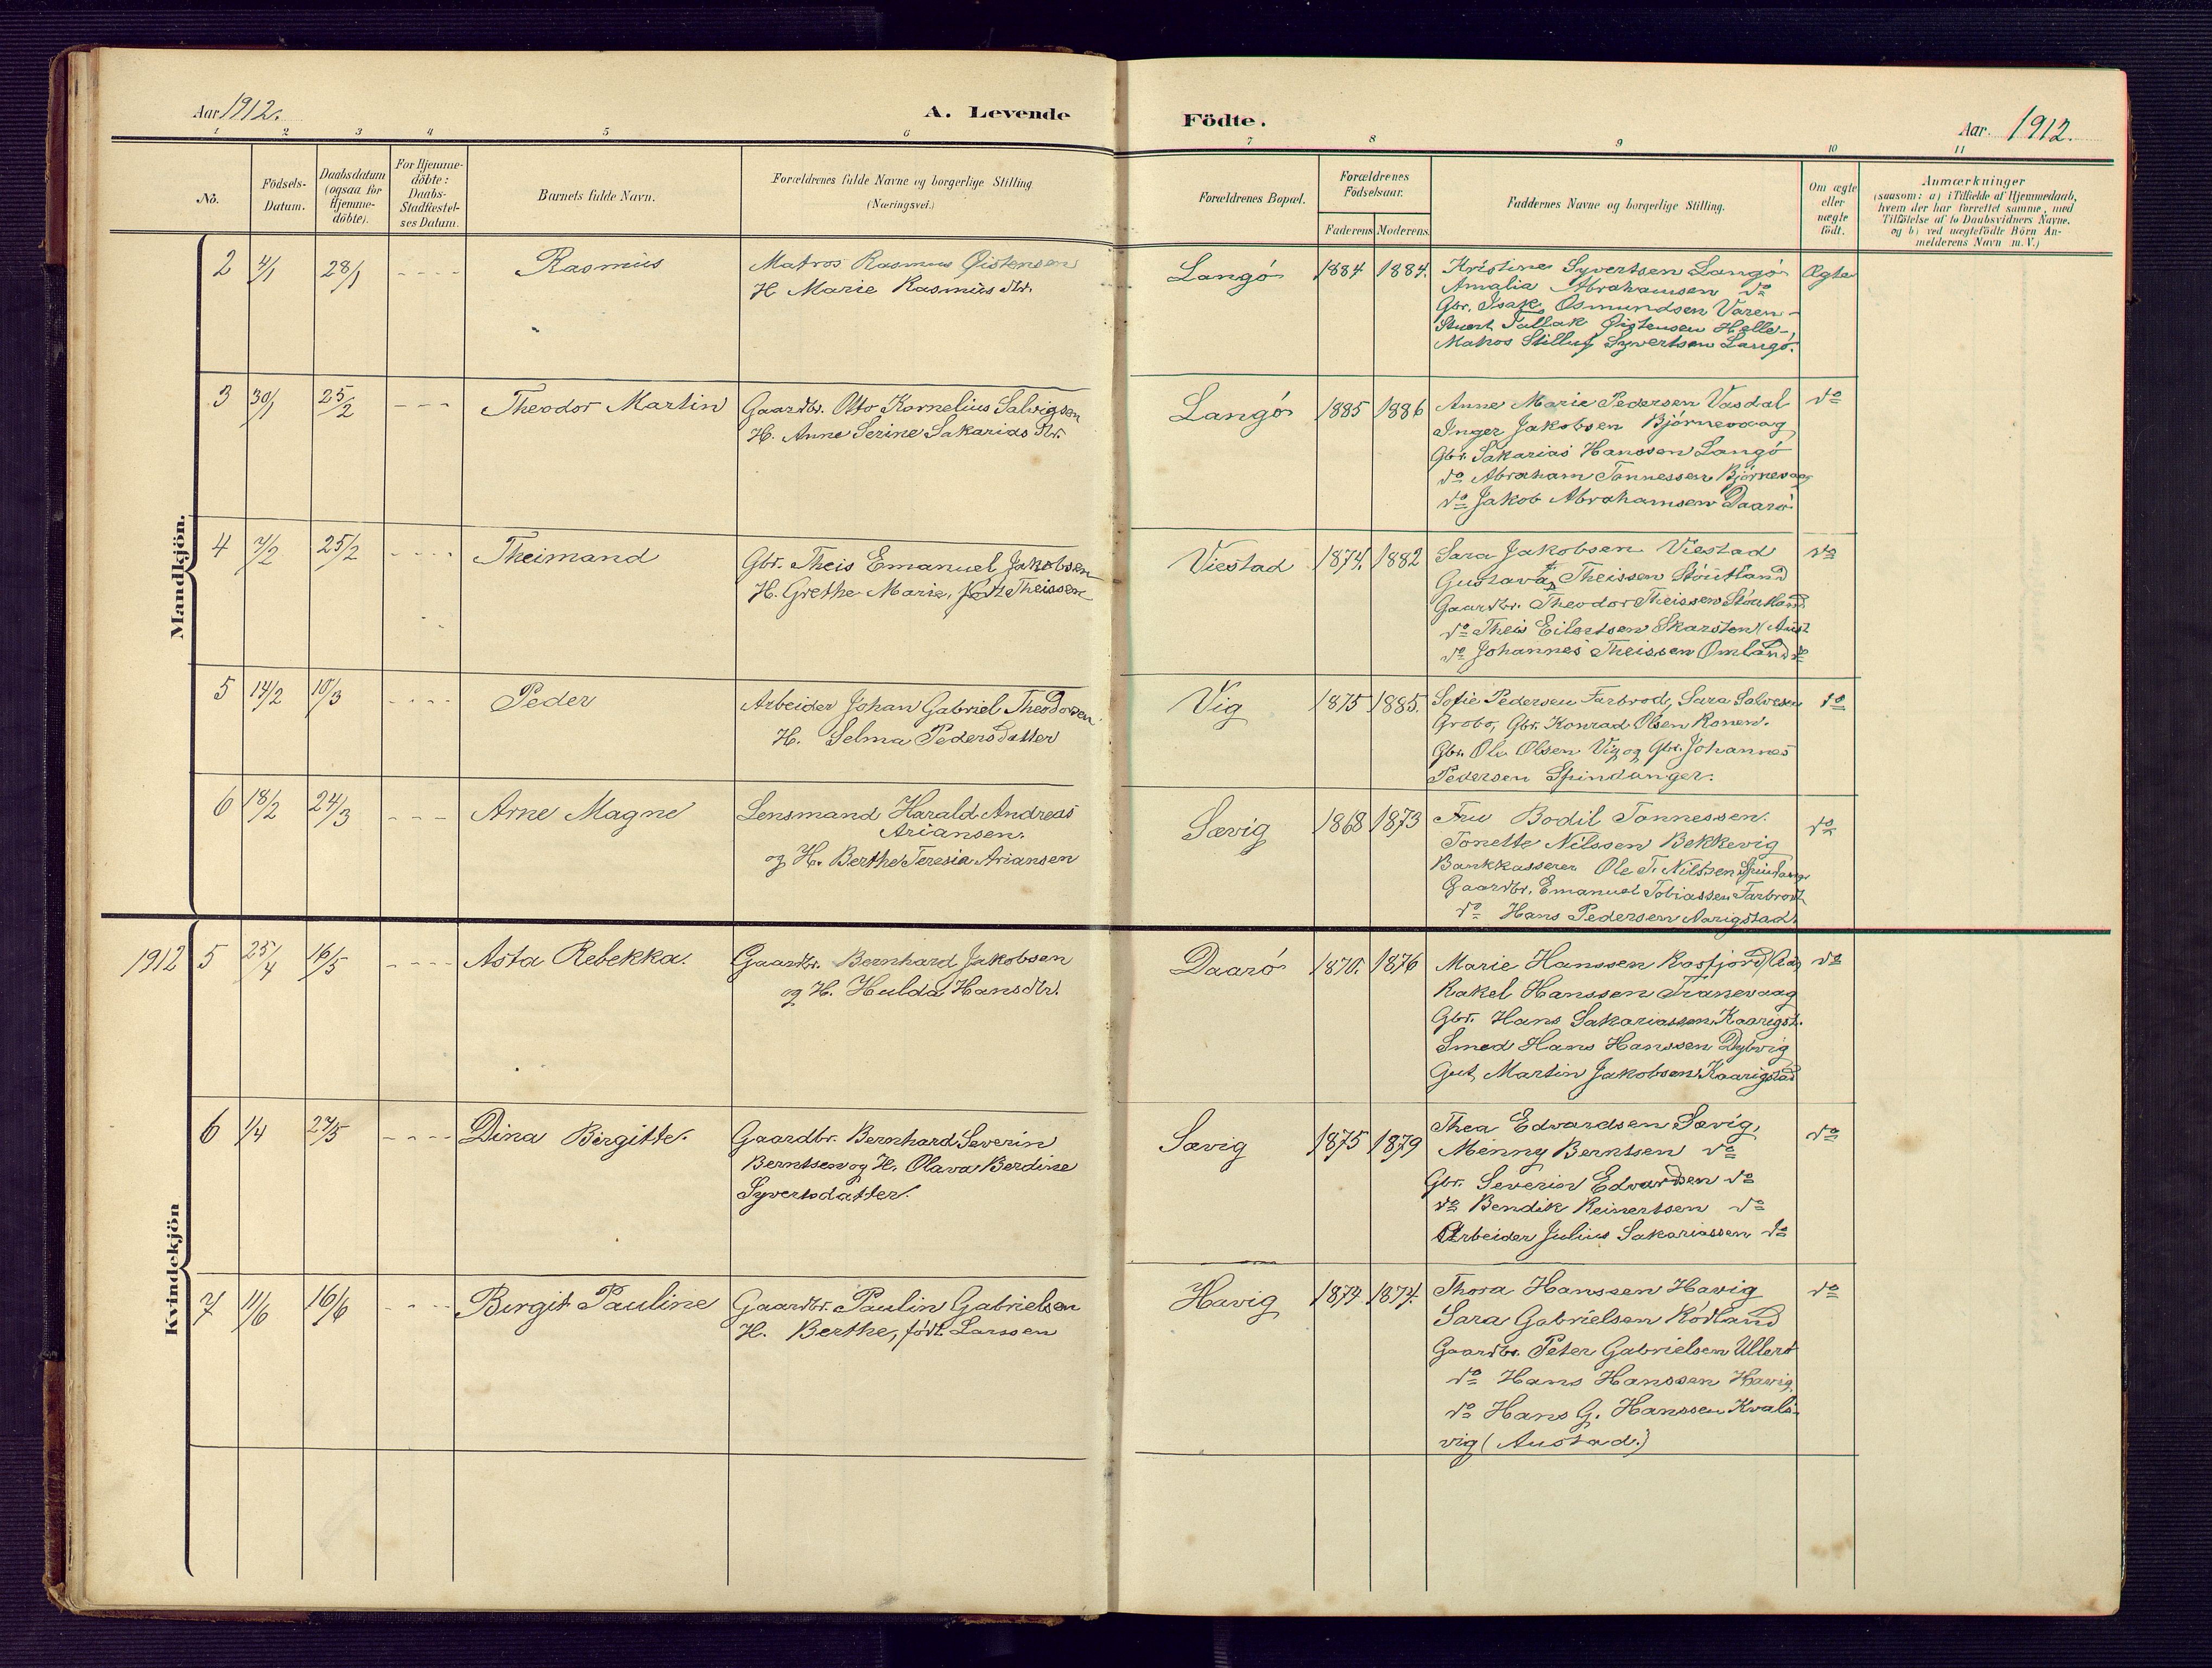 Aar 1912.
A. Levende
Födte.
Aar. 1912.
1 2 3 4 5 6 7 8 9 10 11
No.
Födsels-
Datum.
Daabsdatum
(ogsaa for
Hjemme-
döbte).
For Hjemme-
döbte:
Daabs-
Stadfæstel-
ses Datum.
Barnets fulde Navn.
Forældrenes fulde Navne og borgerlige Stilling
(Næringsvei.)
Forældrenes Bopæl.
Forældrenes
Födselsaar.
Faderens Moderens
Faddernes Navne og borgerlige Stilling.
Om ægte
eller
uægte
födt.
Anmærkninger
(saasom: a) i Tilfælde af Hjemmedaab,
hvem der har forrettet samme, med
Tilföielse af to Daabsvidners Navne.
og b) ved uægtefödte Börn An-
melderens Navn m. V.)
Mandkjön.
2 4/1 28/1 - - - - Rasmus
Matros Rasmus Øistensen
H Marie Rasmusdtr.
Langö 1884 1884.
Kristine Syvertsen Langö
Amalia Abrahamsen do
Gbr. Isak Osmundsen Varen-
Stuert Tallak Øistensen Helle-,
Matros Stilluf Syvertsen Langö.
Ægte
3 30/1 25/2 - - - Theodor Martin
Gaardbr. Otto Kornelius Salvigsen
H. Anne Serine Sakarias Dtr.
Langö 1885 1886
Anne Marie Pedersen Vasdal
Inger Jakobsen Björnevaag
Gbr. Sakarias Hanssen Langö
do Abraham Tönnessen Björnevaag
do Jakob Abrahamsen Daarö
do
4 7/2 25/2 - - - - Theimand
Gbr. Theis Emanuel Jakobsen
H. Grethe Marie, födt Theissen
Viestad 1874. 1882
Sara Jakobsen Viestad
Gustava Theissen Stöutland
Gaardbr. Theodor Theissen Stöutland
do Theis Eilertsen Skarsten (Aust
do Johannes Theissen Omland do
do
5 14/2 10/3 - - - - Peder
Arbeider Johan Gabriel Theodorsen
H. Selma Pedersdatter
Vig 1875 1885.
Sofie Pedersen Farbrod, Sara Salvesen
Grobo, Gbr. Konrad Olsen Ronen.
Gbr. Ole Olsen Vig og Gbr. Johannes
Pedersen Spindanger.
do
6 18/2 24/3 - - - Arne Magne
Lensmand Harald Andreas
Ariansen.
og H. Berthe Teresia Ariansen
Sævig 1868 1873
Fru Bodil Tönnessen.
Tonette Nilssen Bekkevig
Bankkasserer Ole T. Nilssen Spindanger
Gaardbr. Emanuel Tobiassen Farbrodt
do Hans Pedersen Narigstad.
do
Kvindekjön
1912 5 25/4 16/5 - - - - Asta Rebekka.
Gaardbr. Bernhard Jakobsen
og H. Hulda Hansdtr.
Daarö 1870. 1876
Marie Hanssen Rosfjord
Rakel Hanssen Tranevaag
Gbr. Hans Sakariassen Kaarigst.
Smed Hans Hanssen Dybvig
Gut Martin Jakobsen Kaarigstad
do
6 1/4 27/5 - - - - Dina Birgitte.
Gaardbr. Bernhard Severin
Berntsen og H. Olava Berdine
Syvertsdatter.
Sævig 1875 1879
Thea Edvardsen Sævig,
Minny Berntsen do
Gbr. Severin Edvardsen do
do Bendik Reinertsen do
Arbeider Julius Sakariassen do
do
7 11/6 16/6 - - - - Birgit Pauline
Gaardbr. Paulin Gabrielsen
H. Berthe, född Larssen
Havig 1874 1874.
Thora Hanssen Havig
Sara Gabrielsen Rödland
Gaardbr. Peter Gabrielsen Ullerö
do Hans Hanssen Havig,
do Hans G. Hanssen Kvals-
vig (Austad.)
do